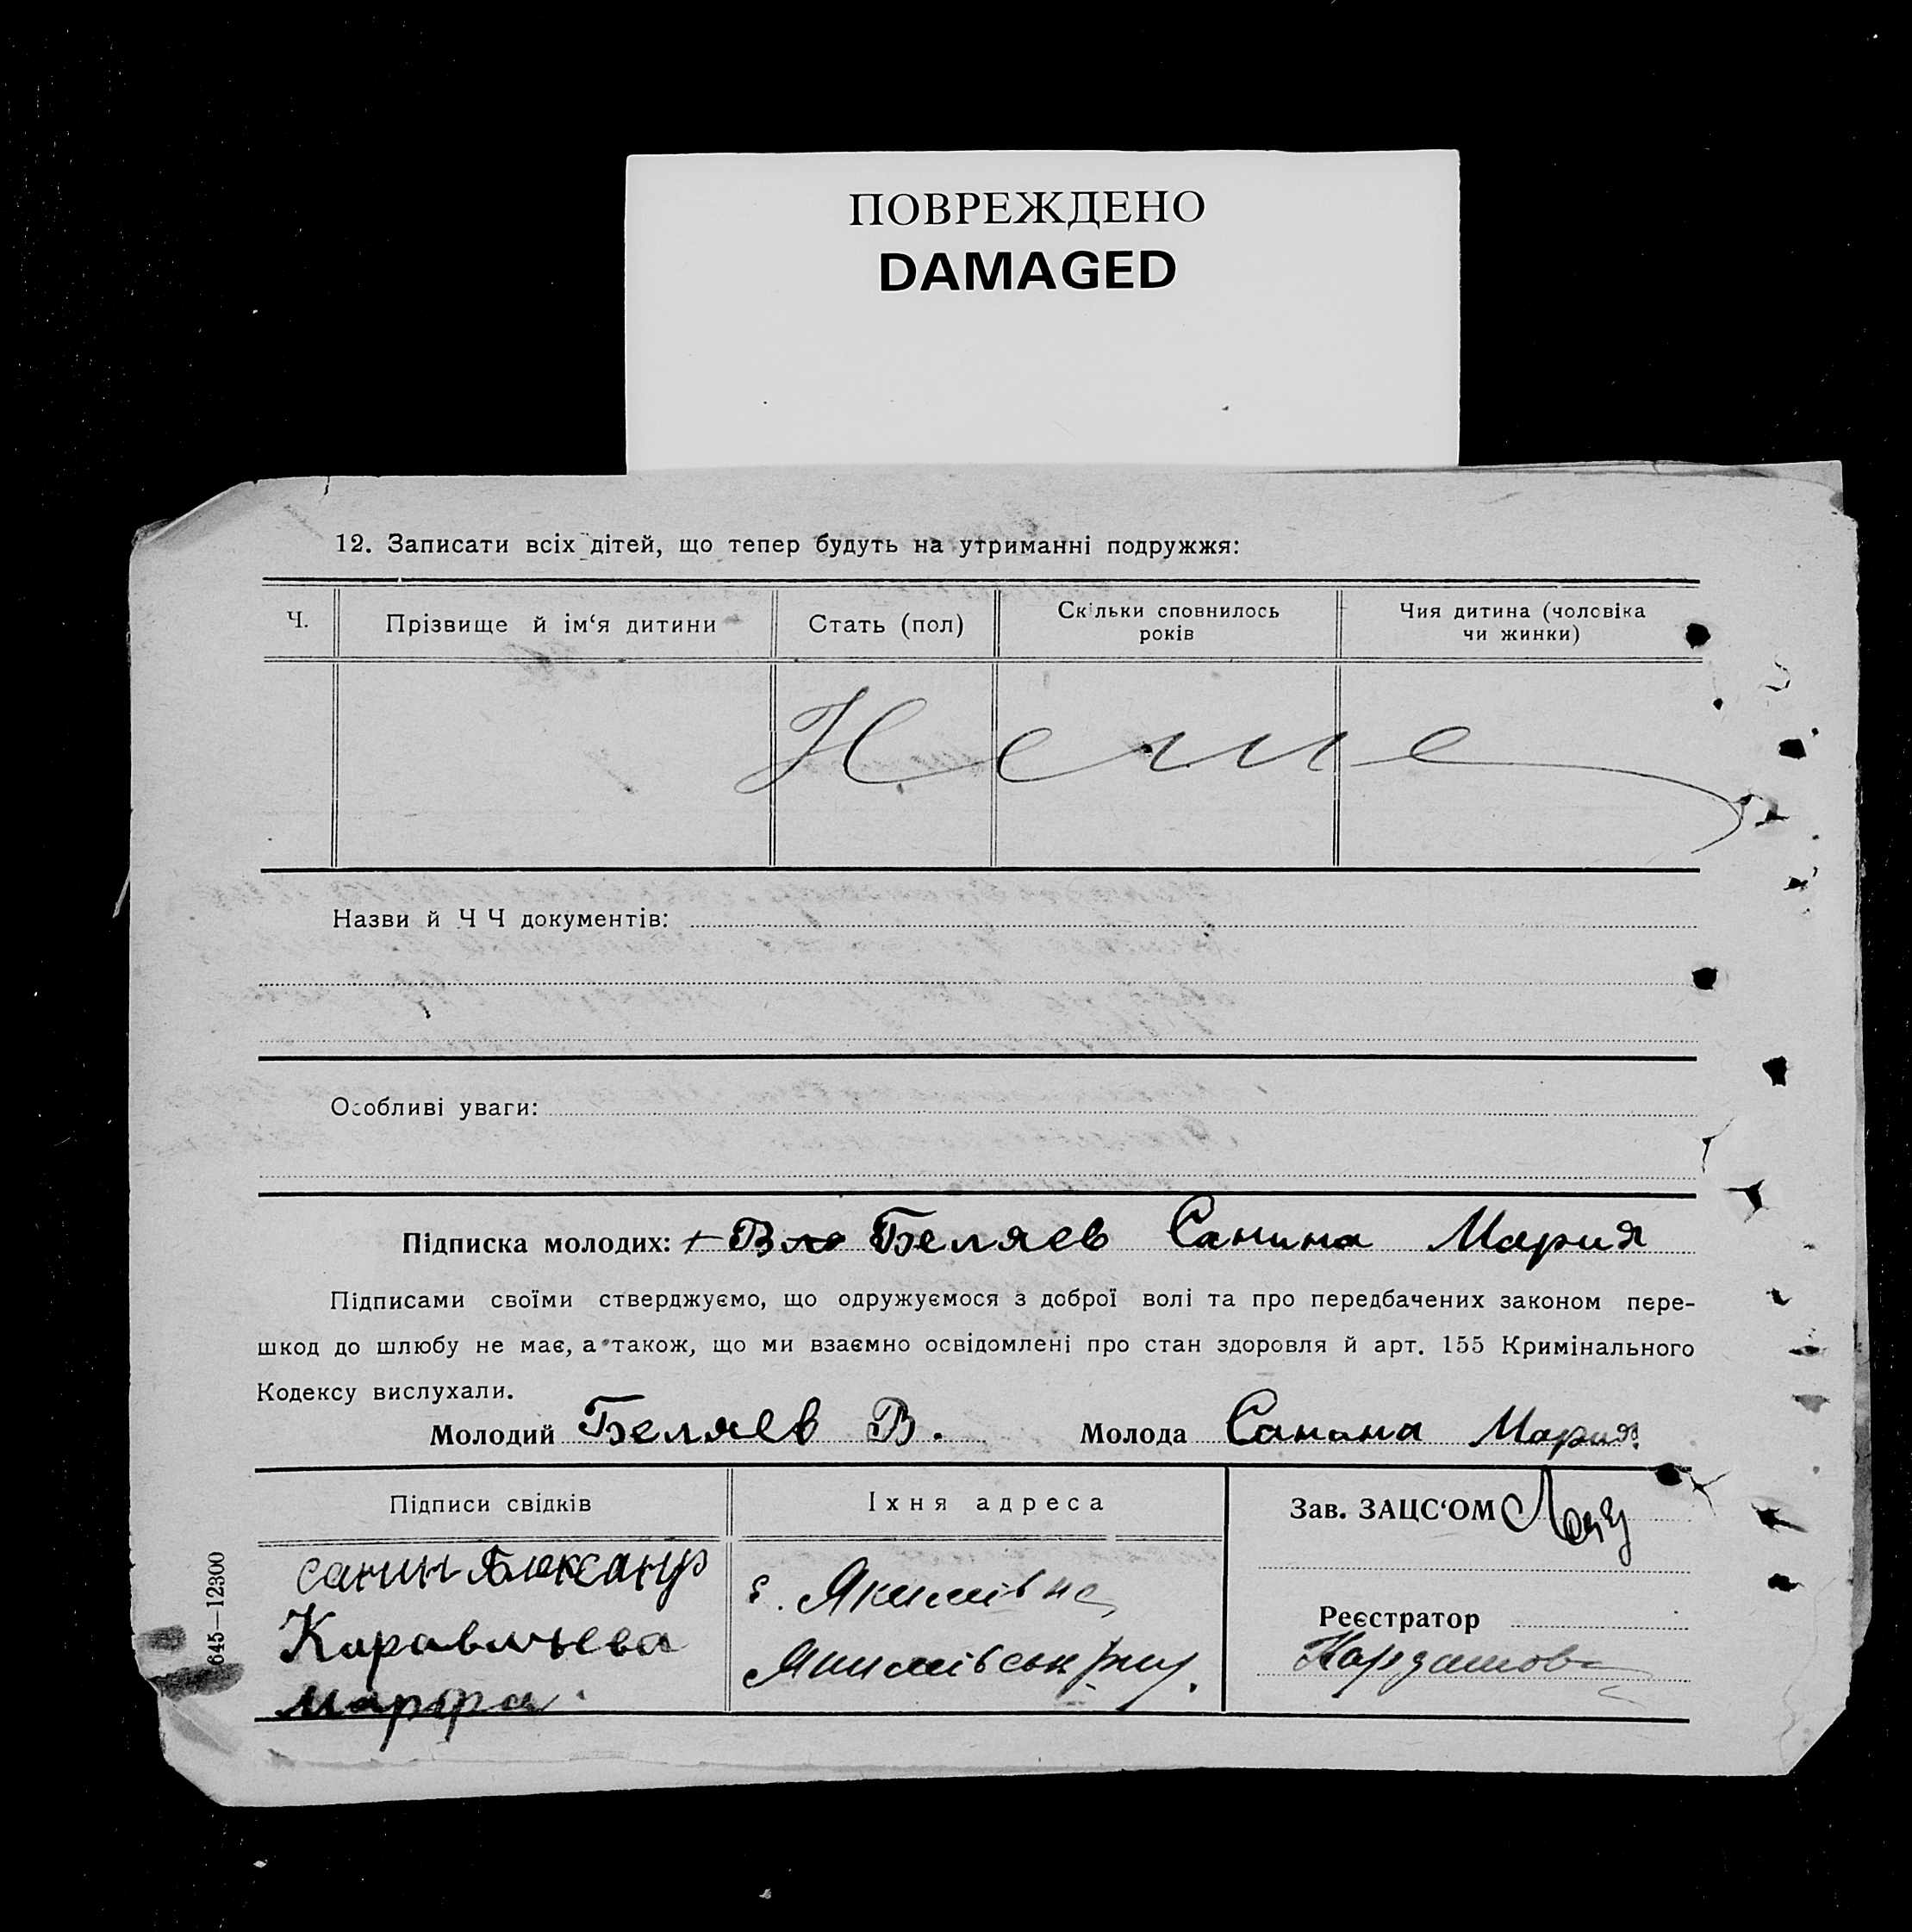 ПОВРЕЖДЕНО
DAMAGED
12. Записати всіх дітей, що тепер будуть на утриманні подружжя:
Ч.
Прізвище й ім‘я дитини
Стать (пол)
Скільки сповнилось
років
Чия дитина (чоловіка
чи жинки)
Неме
Назви й Ч Ч документів:
Особливі уваги:
Підписка молодих: Беляев Санина Мария
Підписами своїми стверджуємо, що одружуємося з доброї волі та про передбачених законом пере-
шкод до шлюбу не має, а також, що ми взаємно освідомлені про стан здоровля й арт. 155 Кримінального
Кодексу вислухали.
Молодий Беляев В. Молода Санина Мария
Підписи свідків
Їхня адреса
Зав. ЗАЦС‘ОМ
санин
Каравычева
марфа
с. Якимівка
Якимівськ
Реєстратор
645—12300